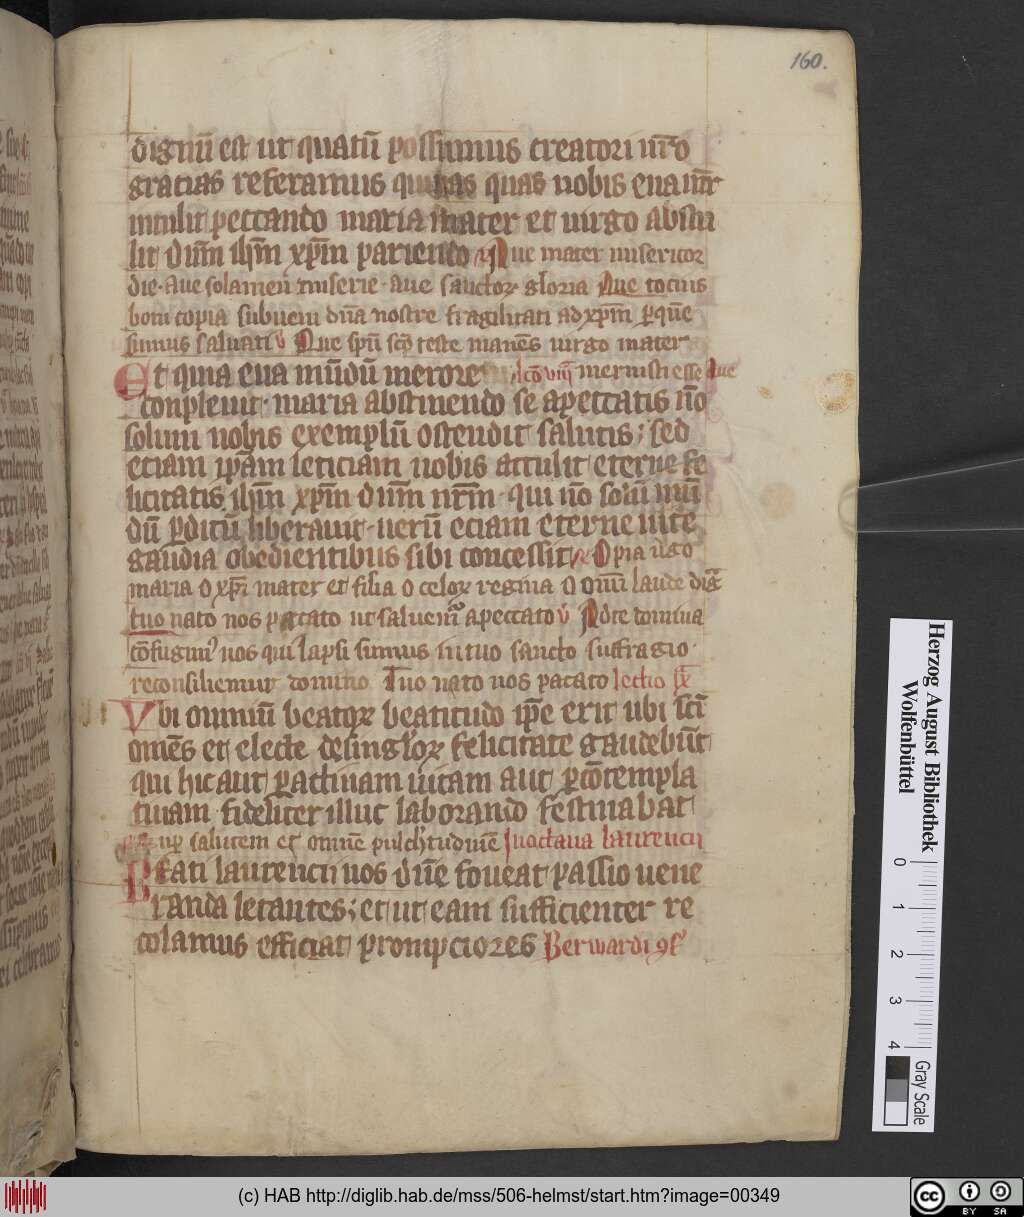 160.
dignū est ut quatū possumus creatori nr̄o
gracias referamus quia quas nobis eua mr̄
intulit peccando maria mater et uirgo abstu
lit dūm ihm̄ xp̄m pariendo Aue mater misericor
die · aue solamen miserie · aue sanctoꝝ gloria Aue tocius
boni copia subueni dn̄a nostre fragilitati ad xp̄m ꝑ que
simus saluati v̉ Aue sp̄u sc̄o teste manēs uirgo mater
Et quia eua mūdū merore lc̄o viij meruisti esse Aue
conpleuit · maria abstinendo se a peccatis nō
solum nobis exemplū ostendit salutis ; sed
eciam ip̄am leticiam nobis attulit eterne fe
licitatis ihm̄ xp̄m dūm nr̄m · qui nō solū mū
dū ꝑditū liberauit · uerū eciam eterne uite
gaudia obedientibus sibi concessit O pia v̉go
maria O xp̄i mater et filia O celoꝝ regina O omī laude digͣ
tuo nato nos pacato ut saluemͬ a peccato v̉ Ad te domina
cōfugimꝰ nos qui lapsi sumus in tuo sancto suffragio ·
reconsiliemur domino Tuo nato nos pacato lectio ix
Vbi omniū beatoꝝ beatitudo ip̄e erit ubi sc̄i
omēs et electe de singl'oꝝ felicitate gaudebūt
qui hic aut ꝑ actiuam uitam aut ꝑ cōtempla
tiuam fidelit̉ illuc laborando festinabat
salutem et omnē pulch̉tudinē In octaua laurencii
Bṫati laurencii nos dn̄e foueat passio uene
randa letantes ; et ut eam sufficienter re
colamus efficiat prompciores Berwardi ꝯf'
Herzog August Bibliothek
Wolfenbüttel
0 1 2 3 4
Gray Scale
(c) HAB http://diglib.hab.de/mss/506-helmst/start.htm?image=00349
cc BY SA